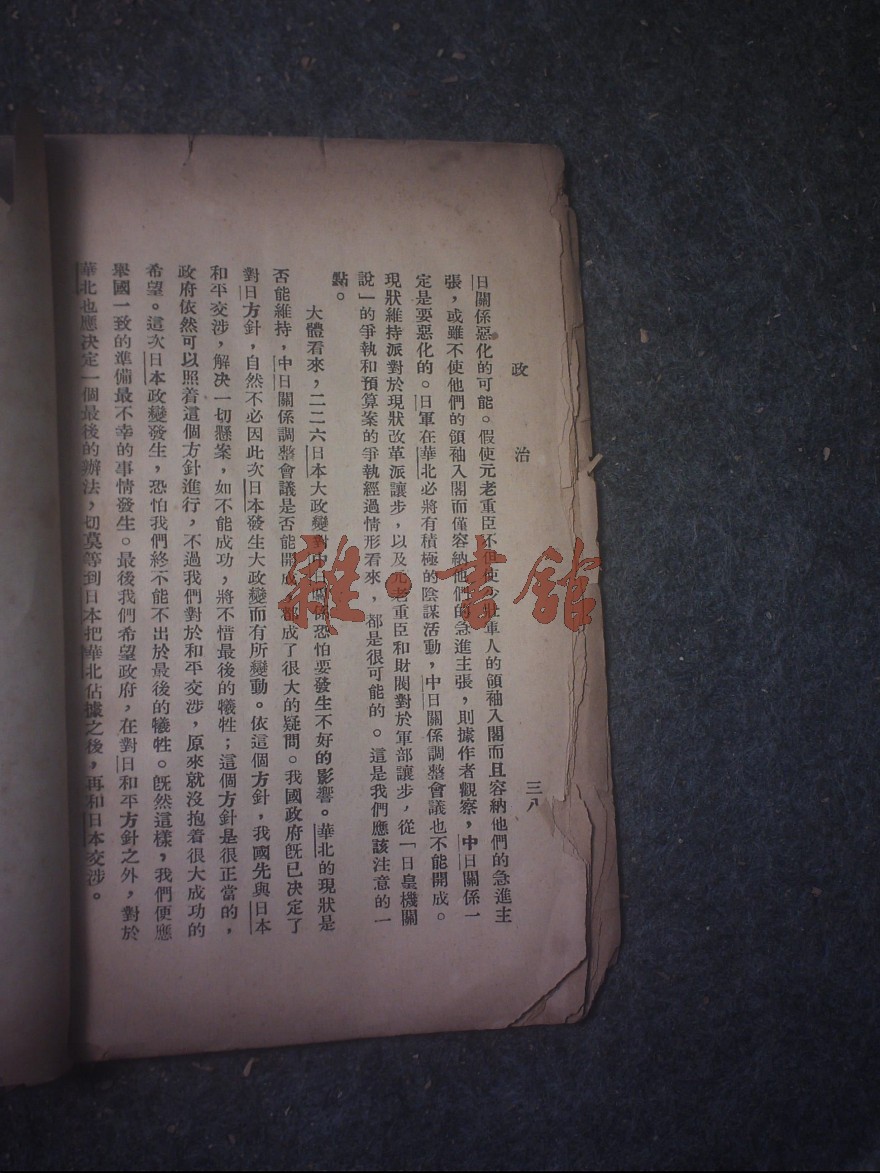 政治
三八
日關係惡化的可能。假使元老重臣不但使少壯軍人的領袖入閣而且容納他們的急進主
張，或雖不使他們的領袖入閣而僅容納他們的急進主張，則據作者觀察，中日關係一
定是要惡化的。日軍在華北必將有積極的陰謀活動，中日關係調整會議也不能開成。
現狀維持派對於現狀改革派讓步，以及元老重臣和財閥對於軍部讓步，從「日皇機關
說」的爭執和預算案的爭執經過情形看來，都是很可能的。這是我們應該注意的一
點。
大體看來，二二六日本大政變對中日關係恐怕要發生不好的影響。華北的現狀是
否能維持，中日關係調整會議是否能開成，都成了很大的疑問。我國政府既已決定了
對日方針，自然不必因此次日本發生大政變而有所變動。依這個方針，我國先與日本
和平交涉，解決一切懸案，如不能成功，將不惜最後的犧牲；這個方針是很正當的，
政府依然可以照着這個方針進行，不過我們對於和平交涉，原來就沒抱着很大成功的
希望。這次日本政變發生，恐怕我們終不能不出於最後的犧牲。既然這樣，我們便應
舉國一致的準備最不幸的事情發生。最後我們希望政府，在對日和平方針之外，對於
華北也應決定一個最後的辦法，切莫等到日本把華北佔據之後，再和日本交涉。
雜·書館